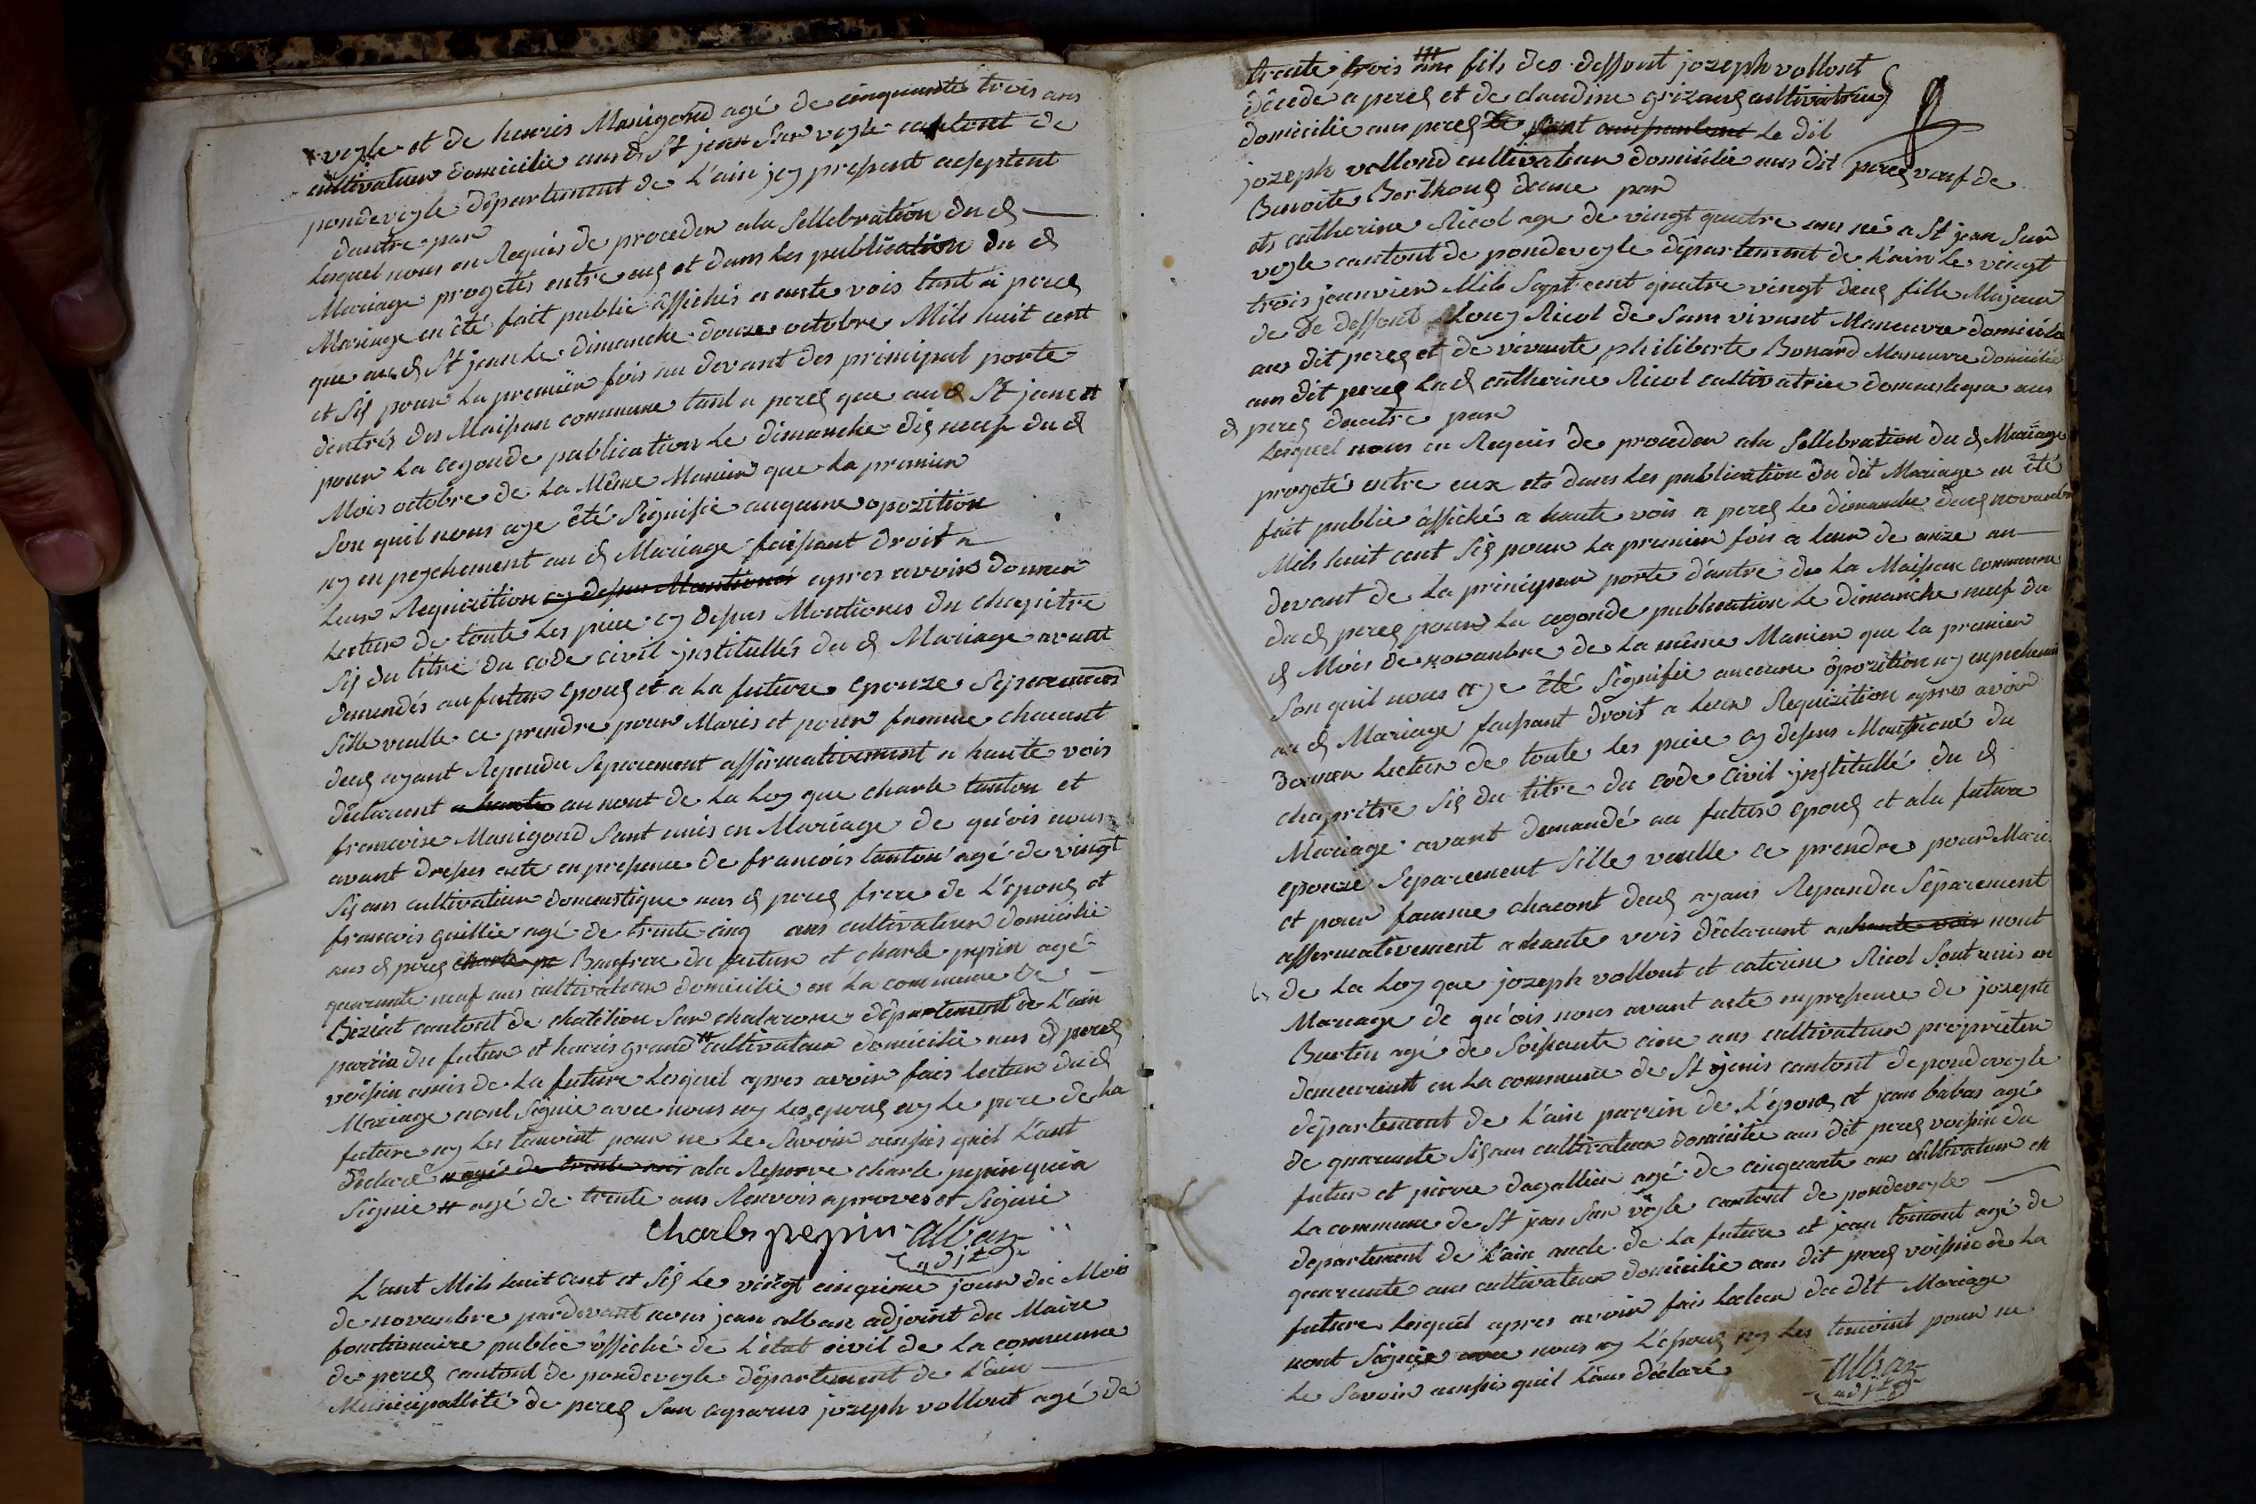 veyle et de henris Manigond agé de cinquante trois ans
cultivateur domicilié aus d St jean Sur veyle cantont de
pondeveyle département de L'ain jcy present acseptent
dautre par
Lesquel nous on Requis de proceder ala Sellebration du d
Mariage progetés entre eus et dans Les publication du d
Mariage en été fait public affichés a aute vois tant a perés
que au d St jean Le dimanche douze octobre Mils huit cent
et Sis pour La premiér fois au devant des principal porte
dentrés des Maison commune tant a peres que au d St jean et
pour La cegonde publication Le dimanche dis neuf du d
Mois octobre de La Même Manier que La premier
Son quil nous aye êté Signifie auqune opozition
ny enpeychement au d Mariage faisant droit a
Leur Requizition cy desus Mantionés apres avoir donner
Lectur de toute Les piece cy desus Montiones du chapitre
Sis du titre du code civil jnstitullés du d Mariage avant
demandés au futur epous et a La future epouze Separement
Sille veulle ce prendre pour Maris et pour famme chacunt
deus ayant Repondu Separement affirmativement a haute vois
declarent a haute au nont de La Loy que charle tanton et
francoise Manigond Sont unis en Mariage de qu'ois nous
avont dresés acte en presence de francois tanton agé de vingt
Sis ans cultivateur domestique aus d peres frere de L'epous et
francois guillie agé de trente cinq ans cultivateur domicilie
aus d peres charle pe Baufrere du futur et charle pepin agé
quarante neuf ans cultivateur domicilié en La commune de
Biziat cantont de chatilion Sur chalarone département de L'ain
parrin du futur et henris grand # cultivateur domicilié aus d peres
voisin amis de La future Lesquel apres avoir fais Lectur du d
Mariage nont Signie avec nous ny Les epous ny Le pere de La
future ny Les temoint pour ne Le Savoir ausis quil L'ant
declaré agé de trente ans ala Reserve charle pepin quia
Signie # agé de trente ans Renvois aproves et Signié
charles pepin alban
adjt
L'ant Mils huit cent et Sis Le vingt cinqieme jour du Mois
de novanbre pardevant nous jean alban adjoint du Maire
fonctionaire public offiché de L'état civil de La commune
de peres cantont de pondeveyle département de L'ain
Municipallité de peres Son conparus jozeph vollont agé de
trente trois ans fils des deffont jozeph vollont
décede a peres et de claudine cultivatrice
domicilié aus peres Le dit
jozeph vollond cultivateur domicilié aus dit peres veuf de
Benoite Berthous deune par
ets catherine Ricol age de vingt quatre ans né a St jean Sur
veyle cantont de pondeveyle département de L'ain Le vingt
trois jeanvier Mils Sept cent quatre vingt deus fille Majeur
de de deffont Louy Ricol de Sans vivant Maneuvre domicilé
aus dit peres et de vivante philiberte Bonard Maneuvre domicilié
aus dit peres La d catherine Ricol cultivatrice domestique aus
d peres deautre par
Lesquel nous on Requis de proceder ala Sellebration du d Mariage
progeté entre eux ets dans Les publication du dit Mariage en êté
fait public affiché a haute vois a peres Le dimanche deus novanbr
Mils huit cent Sis pour La premier fois a Leur de onze au
devant de La principau porte d'antre de La Maison commune
du d peres pour La cegonde publication Le dimanche neuf du
d Mois de novanbre de La même Manier que La premier
Son quil nous aye êté Signifié aucune ôpozition ny enpechemen
au d Mariage faisant droit a Leur Requizition apres avoir
donner Lectur de toute Les piece cy desus Mantioné du
chapitre Sis du titre du code civil jnstitullé du d
Mariage avant demandé au futur epous et ala futur
epouze Separement Sille veulle ce prendre pour Mari
et pour famme chacont deus ayans Repondu Séparement
affirmativement a haute vois déclarent au haute vois nont
de La Loy que jozeph vollont et caterine Ricol Sont unis en
Mariage de qu'ois nous avont acte en presence de jozeph
Burtin agé de Soisante ans cultivateur proprieter
demeurant en La commune de St genis cantont de pondeveyle
département de L'ain parrin de L'épous et jean babas agé
de quarante Sis ans cultivateur domicilié aus dit peres voisin du
futur et pierre dagallier agé de cinquante ans cultivateur en
La commune de St jean Sur veyle cantont de pondeveyle
departement de L'ain oncle de La future et jean agé de
quarante ans cultivateur domicilié aus dit peres voisin de La
future Lesquel apres avoir fais Lectur du dit Mariage
nont Signie avec nous ny L'épous ny Les temoint pour ne
Le Savoir ausis quil L'ans déclaré
alban
adjt